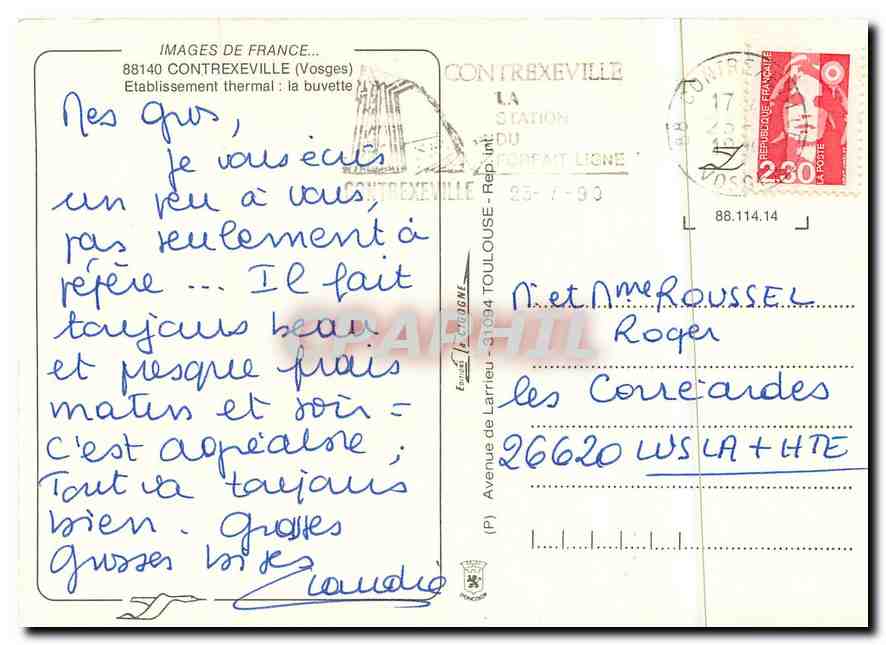 IMAGES DE FRANCE...
88140 CONTREXEVILLE (Vosges)
Etablissement thermal : la buvette
Mes gros,
je vous écris
un peu à vous,
pas seulement à
pépère ... Il fait
toujours beau
et presque frais
matin et soir =
c'est agréable ;
Tout va toujours
bien. Grosses
Grosses bises
Claudie
CONTREXEVILLE
LA
STATION
DU
FORFAIT LIGNE
CONTREXEVILLE
25-7-90
88 CONTREXEVILLE
17
25
VOSGES
REPUBLIQUE FRANÇAISE
2,30
LA POSTE
88.114.14
Editions La CIGOGNE
(P) Avenue de Larrieu - 31094 TOULOUSE - Reprint
CPAPHIL
Mr et Mme ROUSSEL
Roger
les Corréardes
26620 LUS LA + HTE